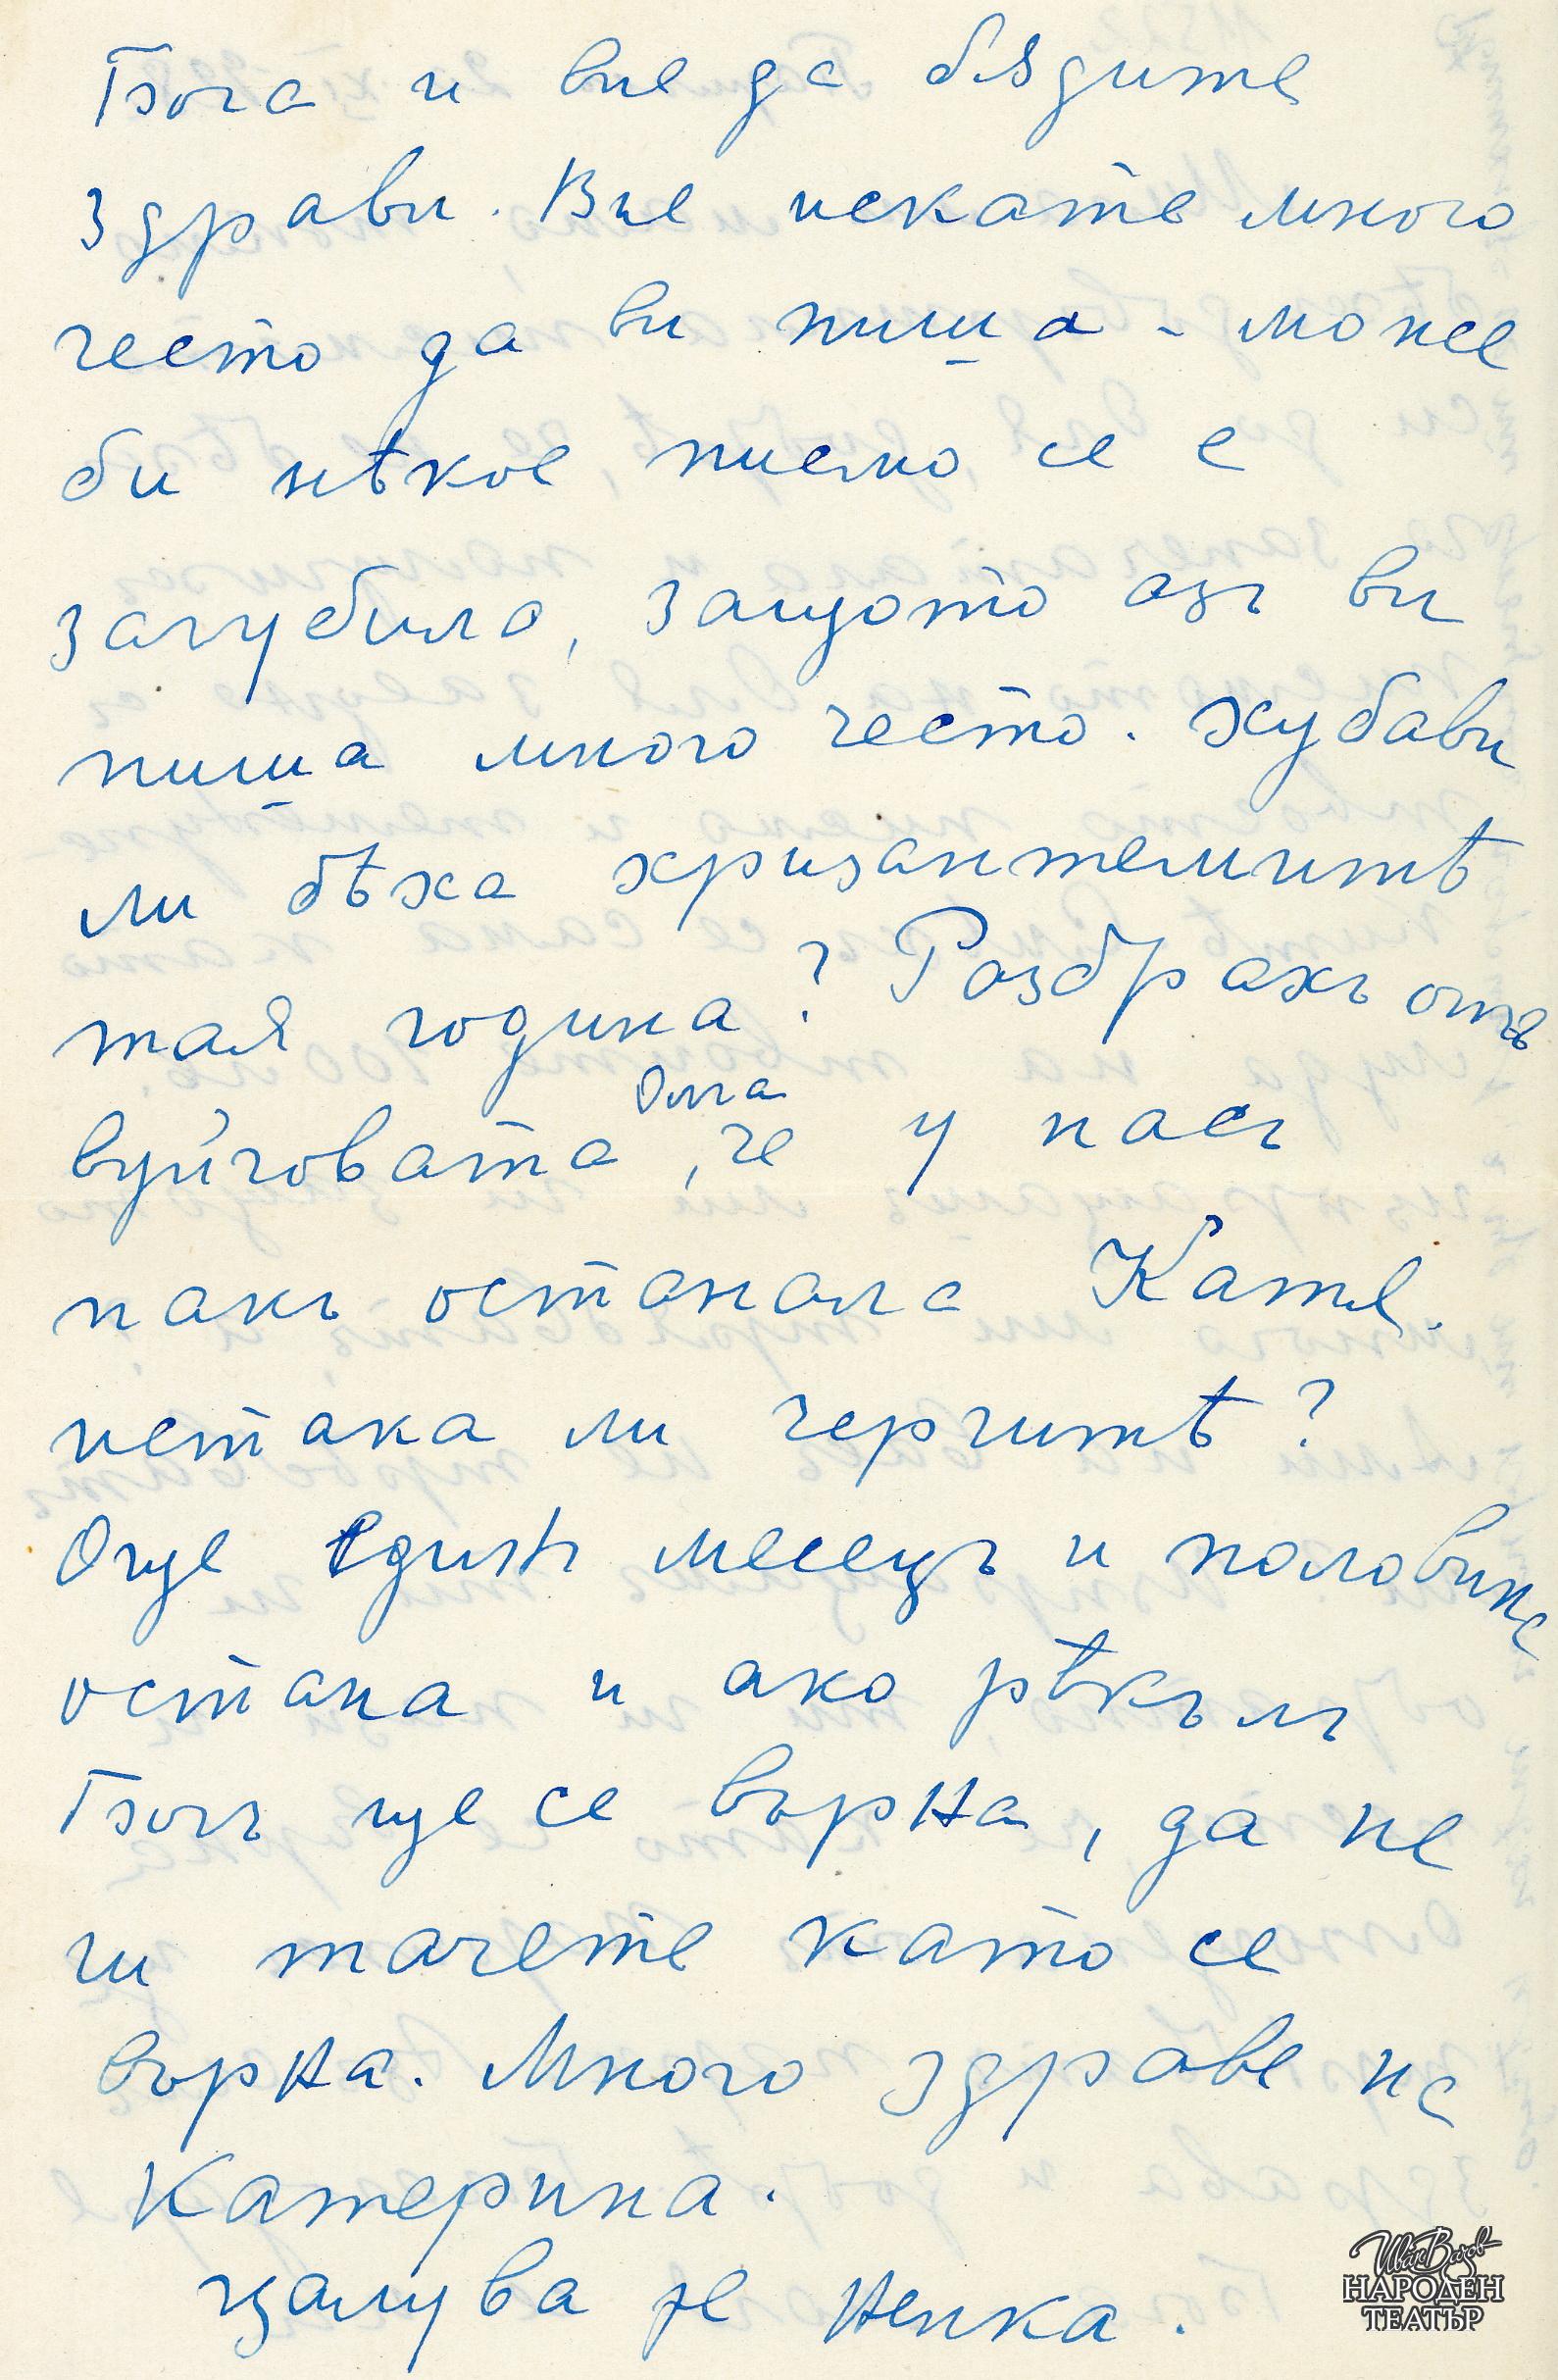 Бога и вие да бѫдите
здрави. Вие искате много
често да ви пиша - може
би нѣкое писмо се е
загубило, защото азъ ви
пиша много често. Хубави
ли бѣха хризантемитѣ
тая година? Разбрахъ отъ
Олга
вуйчовата , че у насъ
пакъ останала Катя.
истака ли чергитѣ?
Още единъ месецъ и половина
остана и ако рѣкълъ
Богъ ще се върна, да не
ги тачете като се
върна. Много здраве на
Катерина.
цалува ве Ненка.
Иван Вазов
НАРОДЕН
ТЕАТЪР